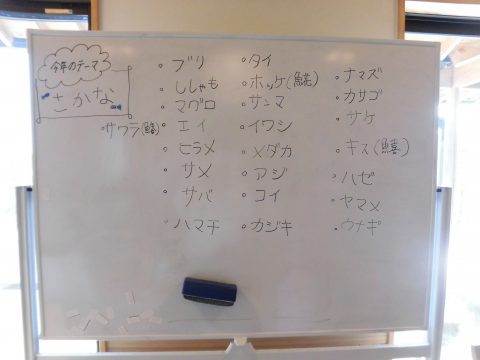 今年のテーマ
さかな
サワラ(鰆)
ブリ
ししゃも
マグロ
エイ
ヒラメ
サメ
サバ
ハマチ
タイ
ホッケ(𩸽)
サンマ
イワシ
メダカ
アジ
コイ
カジキ
ナマズ
カサゴ
サケ
キス(鱚)
ハゼ
ヤマメ
ウナギ